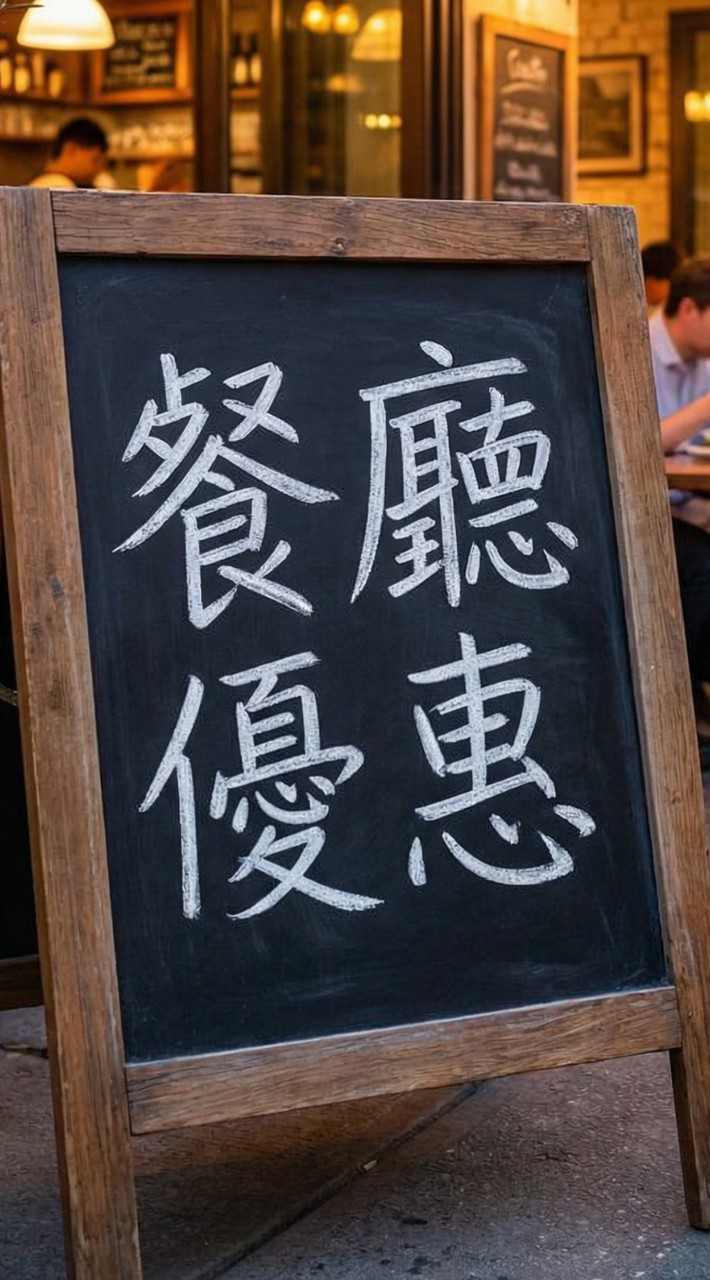 餐廳
優惠